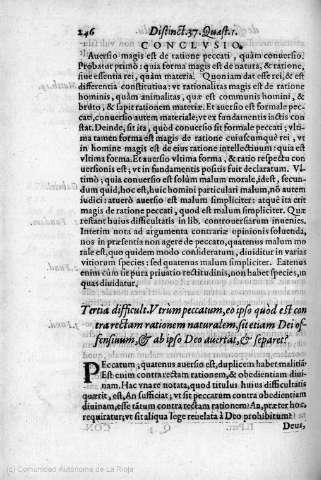 246 Distinct. 37. Quæst. 1.
CONCLVSIO.
Auersio magis est de ratione peccati, quàm conuersio.
Probatur primò: quia forma magis est de natura, & ratione,
siue essentia rei, quàm materia. Quoniam dat esse rei, & est
differentia constitutiua: vt rationalitas magis est de ratione
hominis, quàm animalitas, quæ est communis homini, &
bruto, & sapit rationem materiæ. Et auersio est formale pec
cati, conuersio autem materiale; vt ex fundamentis inctis con
stat. Deinde, sit ita, quòd conuersio sit formale peccati; vlti-
ma tamen forma est magis de ratione cuiuscumque rei, vt
in homine magis est de eius ratione intellectiuum: quia est
vltima forma. Et auersio vltima forma, & ratio respectu con
uersionis est; vt in fundamentis positis fuit declaratum. Vl-
timò; quia conuersio est solùm malum morale, id est, secun-
dum quid, hoc est, huic homini particulari malum, nõ autem
iudici: at verò auersio est malum simpliciter: atque ita erit
magis de ratione peccati, quod est malum simpliciter. Quæ
restant huius difficultatis in lib. controuersiarum inuenies.
Interim nota ad argumenta contrariæ opinionis soluenda,
nos in præsentia non agere de peccato, quatenus malum mo
rale est, quo quidem modo consideratum, diuiditur in varias
vitiorum species: sed quatenus malum simpliciter. Eatenus
enim cùm sit pura priuatio rectitudinis, non habet species, in
quas diuidatur.
Tertia difficult. Vtrùm peccatum, eo ipso quòd est con
tra rectam rationem naturalem, sit etiam Dei of-
fensiuum, & ab ipso Deo auertat, & separet?
PEccatum; quatenus auersio est, duplicem habet malitiã:
Est enim contra rectam rationem, & obedientiam diui-
nam. Hac vnare notata, quod titulus huius difficultatis
quærit, est, An sufficiat; vt sit peccatum contra obedientiam
diuinam, esse tãtum contra rectam rationem? An, præter hoc,
requiratur; vt sit aliqua lege reuelata à Deo prohibitum?
Deus,
(c) Comunidad Autónoma de La Rioja